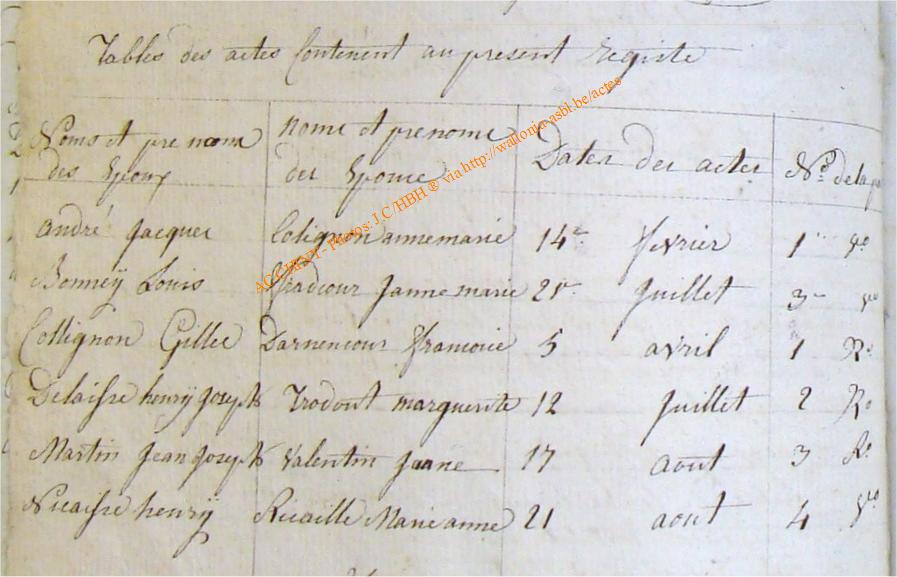 Tables des actes Contenent au present Registe
Noms et pre noms des Epoux | noms et prenoms des Epouse | Dates des actes | No. de la
André Jacques | Colignon annemarie | 14e. fevrier | 1 vo
Bonneÿ Louis | Jeanne marie | 21e. Juillet | 3 vo
Collignon Gilles | francoise | 5 avril | 1 Ro
Delaisse henrÿ Joseph | Trodout marguerite | 12 Juillet | 2 Ro
Martin Jean Joseph | Valentin Jeanne | 17 aout | 3 Ro
Nicaisse henrÿ | Ricaille Marie anne | 21 aout | 4 vo
ACCHEVT - Photos: J.C/HBH ® via http://wallonia-asbl.be/actes